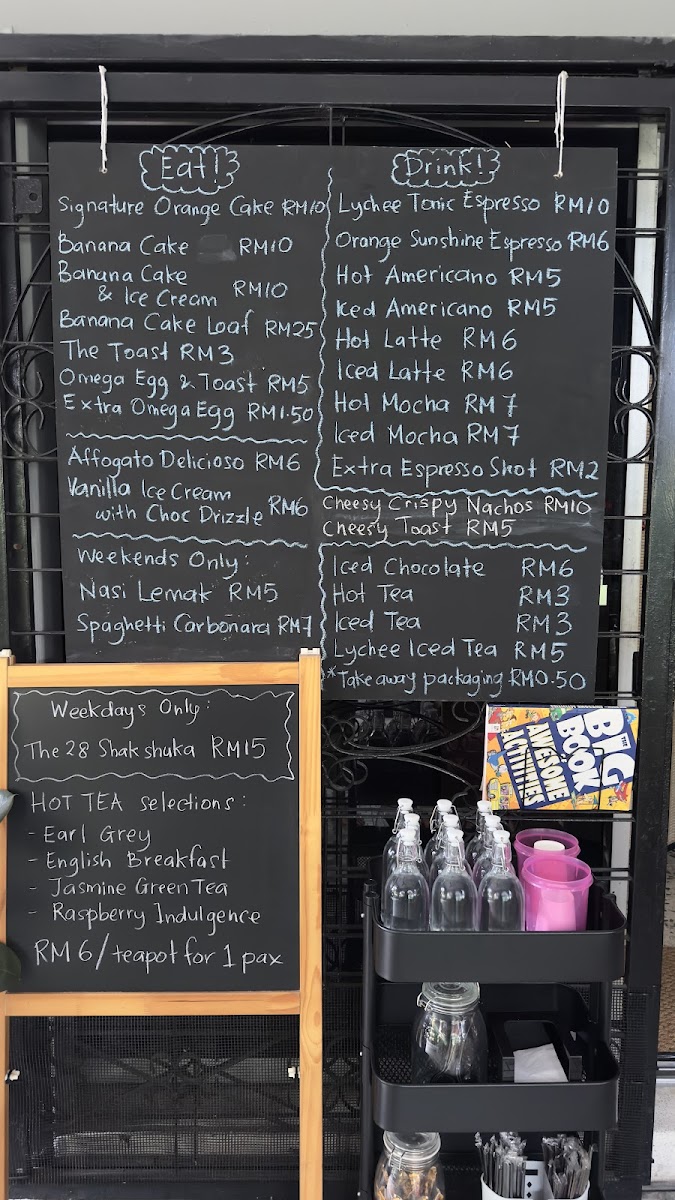 Eat!
Signature Orange Cake RM10
Banana Cake RM10
Banana Cake
& Ice Cream RM10
Banana Cake Loaf RM25
The Toast RM3
Omega Egg & Toast RM5
Extra Omega Egg RM1.50
Affogato Delicioso RM6
Vanilla Ice Cream
with Choc Drizzle RM6
Weekends Only:
Nasi Lemak RM5
Spaghetti Carbonara RM7
Drink!
Lychee Tonic Espresso RM10
Orange Sunshine Espresso RM6
Hot Americano RM5
Iced Americano RM5
Hot Latte RM6
Iced Latte RM6
Hot Mocha RM7
Iced Mocha RM7
Extra Espresso Shot RM2
Cheesy Crispy Nachos RM10
Cheesy Toast RM5
Iced Chocolate RM6
Hot Tea RM3
Iced Tea RM3
Lychee Iced Tea RM5
*Take away packaging RM0.50
Weekdays Only:
The 28 Shakshuka RM15
HOT TEA selections:
- Earl Grey
- English Breakfast
- Jasmine Green Tea
- Raspberry Indulgence
RM6/teapot for 1 pax
THE
BIG
BOOK
AWESOME
ACTIVITIES